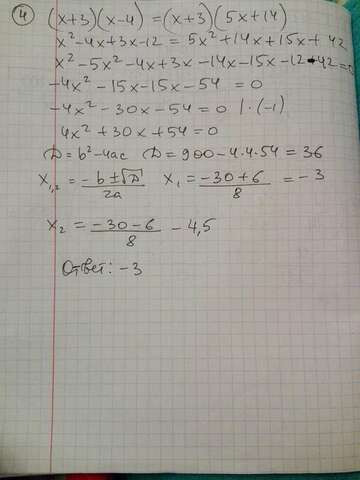 ④ (x+3)(x-4) = (x+3)(5x+14)
x²-4x+3x-12 = 5x²+14x+15x+42
x²-5x²-4x+3x-14x-15x-12-42=0
-4x²-15x-15x-54 = 0
-4x²-30x-54 = 0 | ·(-1)
4x²+30x+54=0
D=b²-4ac D=900-4·4·54=36
x₁,₂ = (-b±√D)/2a x₁ = (-30+6)/8 = -3
x₂ = (-30-6)/8 - 4,5
Ответ: -3